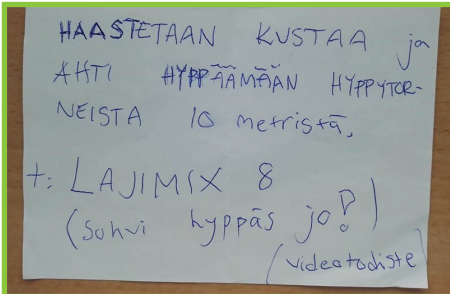 HAASTETAAN KUSTAA ja
AHTI HYPPÄÄMÄÄN HYPPYTOR-
NEISTA 10 metristä,
t: LAJIMIX 8
(sohvi hyppäs jo!)
(videotodiste)